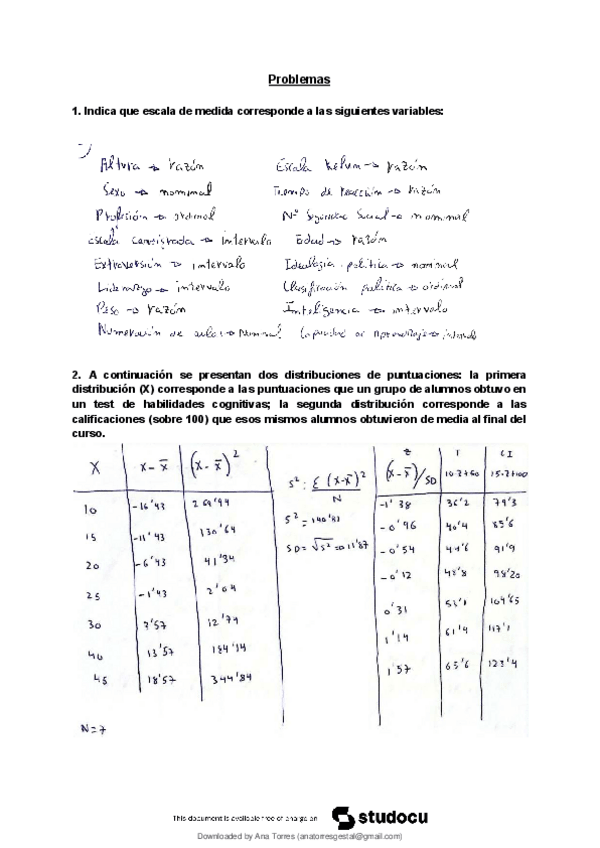 Problemas
1. Indica que escala de medida corresponde a las siguientes variables:
1)
Altura → razón Escala Kelvin → razón
Sexo → nominal Tiempo de reacción → razón
Profesión → ordinal Nº Seguridad Social → nominal
escala centígrada → intervalo Edad → razón
Extroversión → intervalo Ideología política → nominal
Liderazgo → intervalo Clasificación política → ordinal
Peso → razón Inteligencia → intervalo
Numeración de aulas → Nominal Capacidad de aprendizaje → intervalo
2. A continuación se presentan dos distribuciones de puntuaciones: la primera
distribución (X) corresponde a las puntuaciones que un grupo de alumnos obtuvo en
un test de habilidades cognitivas; la segunda distribución corresponde a las
calificaciones (sobre 100) que esos mismos alumnos obtuvieron de media al final del
curso.
X x-x̄ (x-x̄)² z (x-x̄)/SD T 10·z+50 CI 15·z+100
S²: Σ(x-x̄)²/N
S² = 140'81
SD = √S² = 11'87
10 -16'43 269'94 -1'38 36'2 79'3
15 -11'43 130'64 -0'96 40'4 85'6
20 -6'43 41'34 -0'54 44'6 91'9
25 -1'43 2'04 -0'12 48'8 98'20
30 3'57 12'74 0'31 53'1 104'65
40 13'57 184'14 1'14 61'4 117'1
45 18'57 344'84 1'57 65'6 123'4
N=7
This document is available free of charge on
studocu
Downloaded by Ana Torres (anatorresgestal@gmail.com)